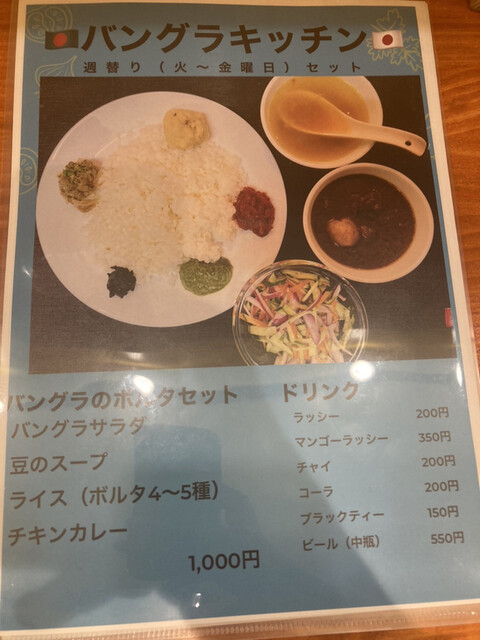 バングラキッチン
週替り（火～金曜日）セット
バングラのボルタセット
バングラサラダ
豆のスープ
ライス（ボルタ4～5種）
チキンカレー
1,000円
ドリンク
ラッシー 200円
マンゴーラッシー 350円
チャイ 200円
コーラ 200円
ブラックティー 150円
ビール（中瓶） 550円